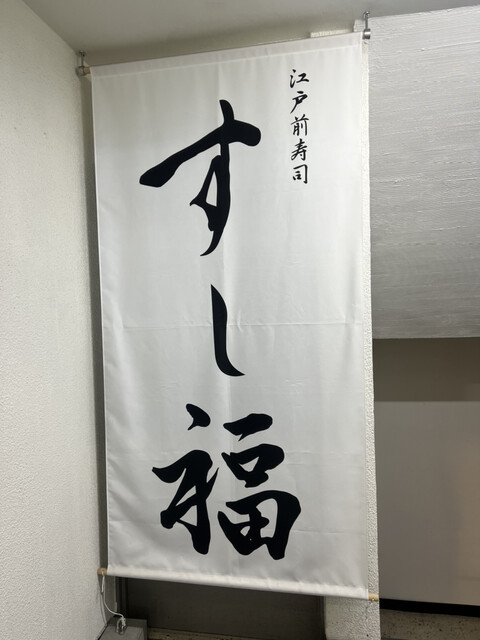 江戸前寿司
すし福